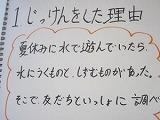 1 じっけんをした理由
夏休みに水で遊んでいたら、
水にうくものと、しずむものがあった。
そこで、友だちといっしょに調べ